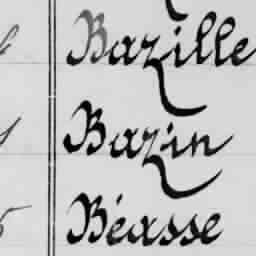 Bazille
Bazin
Béasse